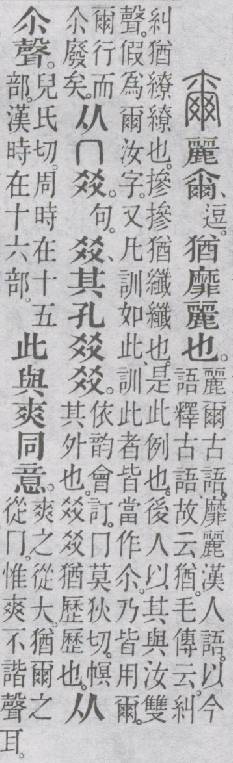 爾 麗爾、逗。猶靡麗也。麗爾古語。靡麗漢人語。以今語釋古語故云猶。毛傳云。糾
糾猶繚繚也。摻摻猶纖纖也。是此例也。後人以其與汝雙聲。假爲爾汝字。又凡訓如此、訓此者皆當作尒。乃皆用爾。
爾行而尒廢矣。从冂㸚。句。㸚、其孔㸚㸚。依韵會訂。冂莫狄切。幎其外也。㸚㸚猶歷歷也。从
尒聲。兒氏切。周時在十五部。漢時在十六部。此與爽同意。爽之從大。猶爾之從冂。惟爽不諧聲耳。